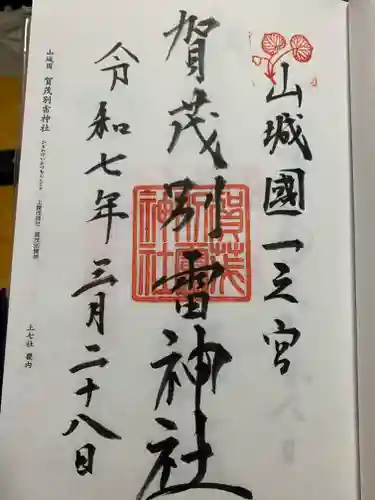 山城國一之宮
賀茂別雷神社
令和七年三月二十八日
賀茂別雷神社
山城国 賀茂別雷神社
上七社 畿内